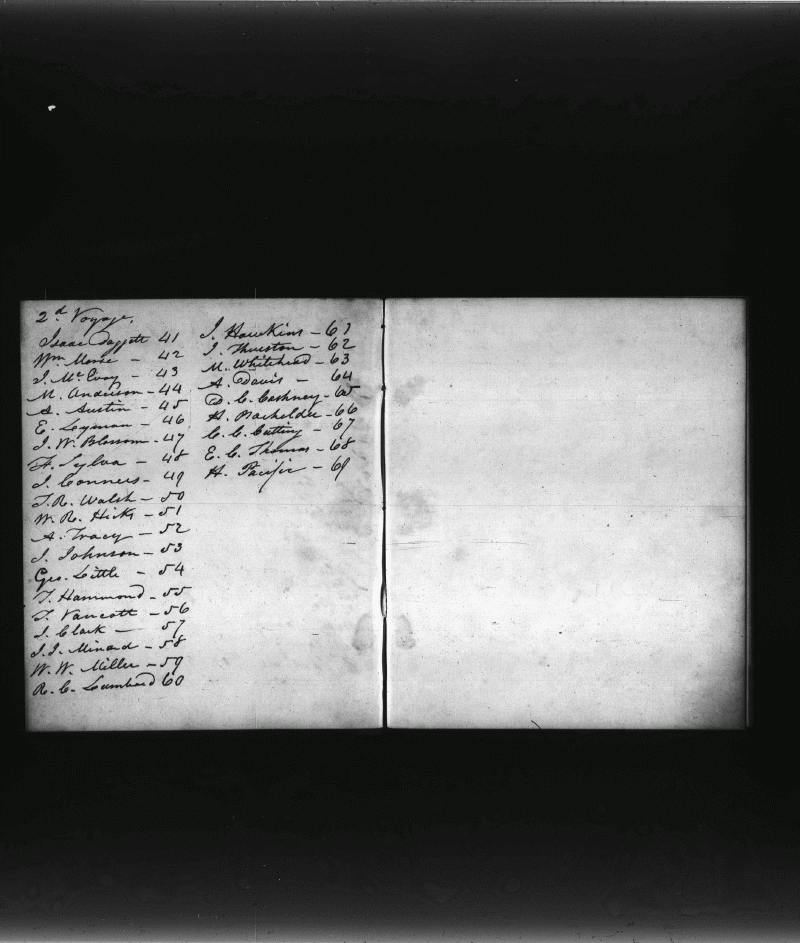 2d Voyage.
Isaac Daggett 41
Wm. Morse - 42
J. McEvoy - 43
M. Anderson - 44
A. Austin - 45
E. Lyman - 46
J. W. Blossom - 47
F. Sylva - 48
J. Conners - 49
T. R. Walsh - 50
W. R. Hicks - 51
A. Tracy - 52
J. Johnson - 53
Geo. Little - 54
T. Hammond - 55
T. Vancott - 56
J. Clark - 57
J. J. Minard - 58
W. W. Miller - 59
R. C. Lumbard 60
J. Hawkins - 61
J. Thurston - 62
M. Whitehead - 63
A. Davis - 64
D. C. - 65
H. Bachelder - 66
C. C. Cutting - 67
E. C. Thomas - 68
H. Pacific - 69